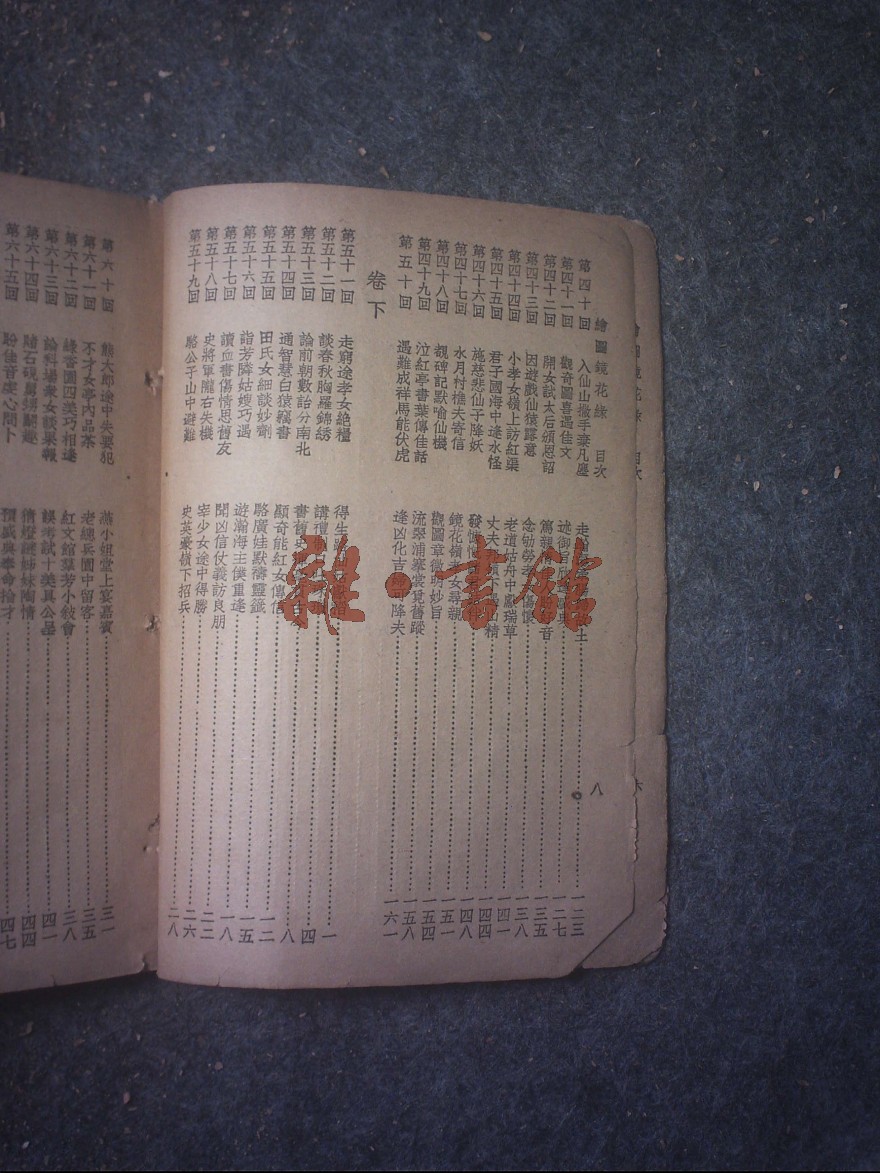 繪圖鏡花緣 目次 八
第四十回 入仙山撒手棄凡塵 走 土 一二三
第四十一回 觀奇圖喜遇佳文 述御旨 一二七
第四十二回 開女試太后頒恩詔 篤親 音 一三五
第四十三回 因遊戲仙猿露意 念劬勞 傷懷 一三八
第四十四回 小孝女嶺上訪紅蕖 老道姑舟中獻瑞草 一四一
第四十五回 君子國海中逢水怪 丈夫 嶺下 山精 一四四
第四十六回 施慈悲仙子降妖 發慷慨 一四八
第四十七回 水月村樵夫寄信 鏡花嶺 女尋親 一五一
第四十八回 觀碑記默喻仙機 觀圖章微明妙旨 一五四
第四十九回 泣紅亭書葉傳佳話 流翠浦搴裳覓舊蹤 一五八
第五十回 遇難成祥馬能伏虎 逢凶化吉 可降夫 一六一
卷下
第五十一回 走窮途孝女絕糧 得生 一
第五十二回 談春秋胸羅錦繡 講禮 四
第五十三回 論前朝數詒分南北 書舊史 八
第五十四回 通智慧白猿竊書 顯奇能紅女傳信 一二
第五十五回 田氏女細談妙劑 駱廣娃默禱靈籤 一五
第五十六回 詣芳隣姑嫂巧遇 遊瀚海主僕重逢 一八
第五十七回 讀血書傷情思舊友 聞凶信仗義訪良朋 二二
第五十八回 史將軍隴右失機 宰少女途中得勝 二六
第五十九回 駱公子山中避難 史英豪嶺下招兵 二八
第六十回 熊大郎途中失要犯 燕小姐堂上宴嘉賓 三一
第六十一回 不才女亭內品茶 老總兵園中留客 三五
第六十二回 綠香園四美巧相逢 紅文館羣芳小敘會 三八
第六十三回 論科場衆女談果報 誤考試十美具公呈 四一
第六十四回 賭石硯舅甥鬭趣 猜燈謎姊妹陶情 四四
第六十五回 盼佳音虔心問卜 預盛典奉命掄才 四七
雜·書館